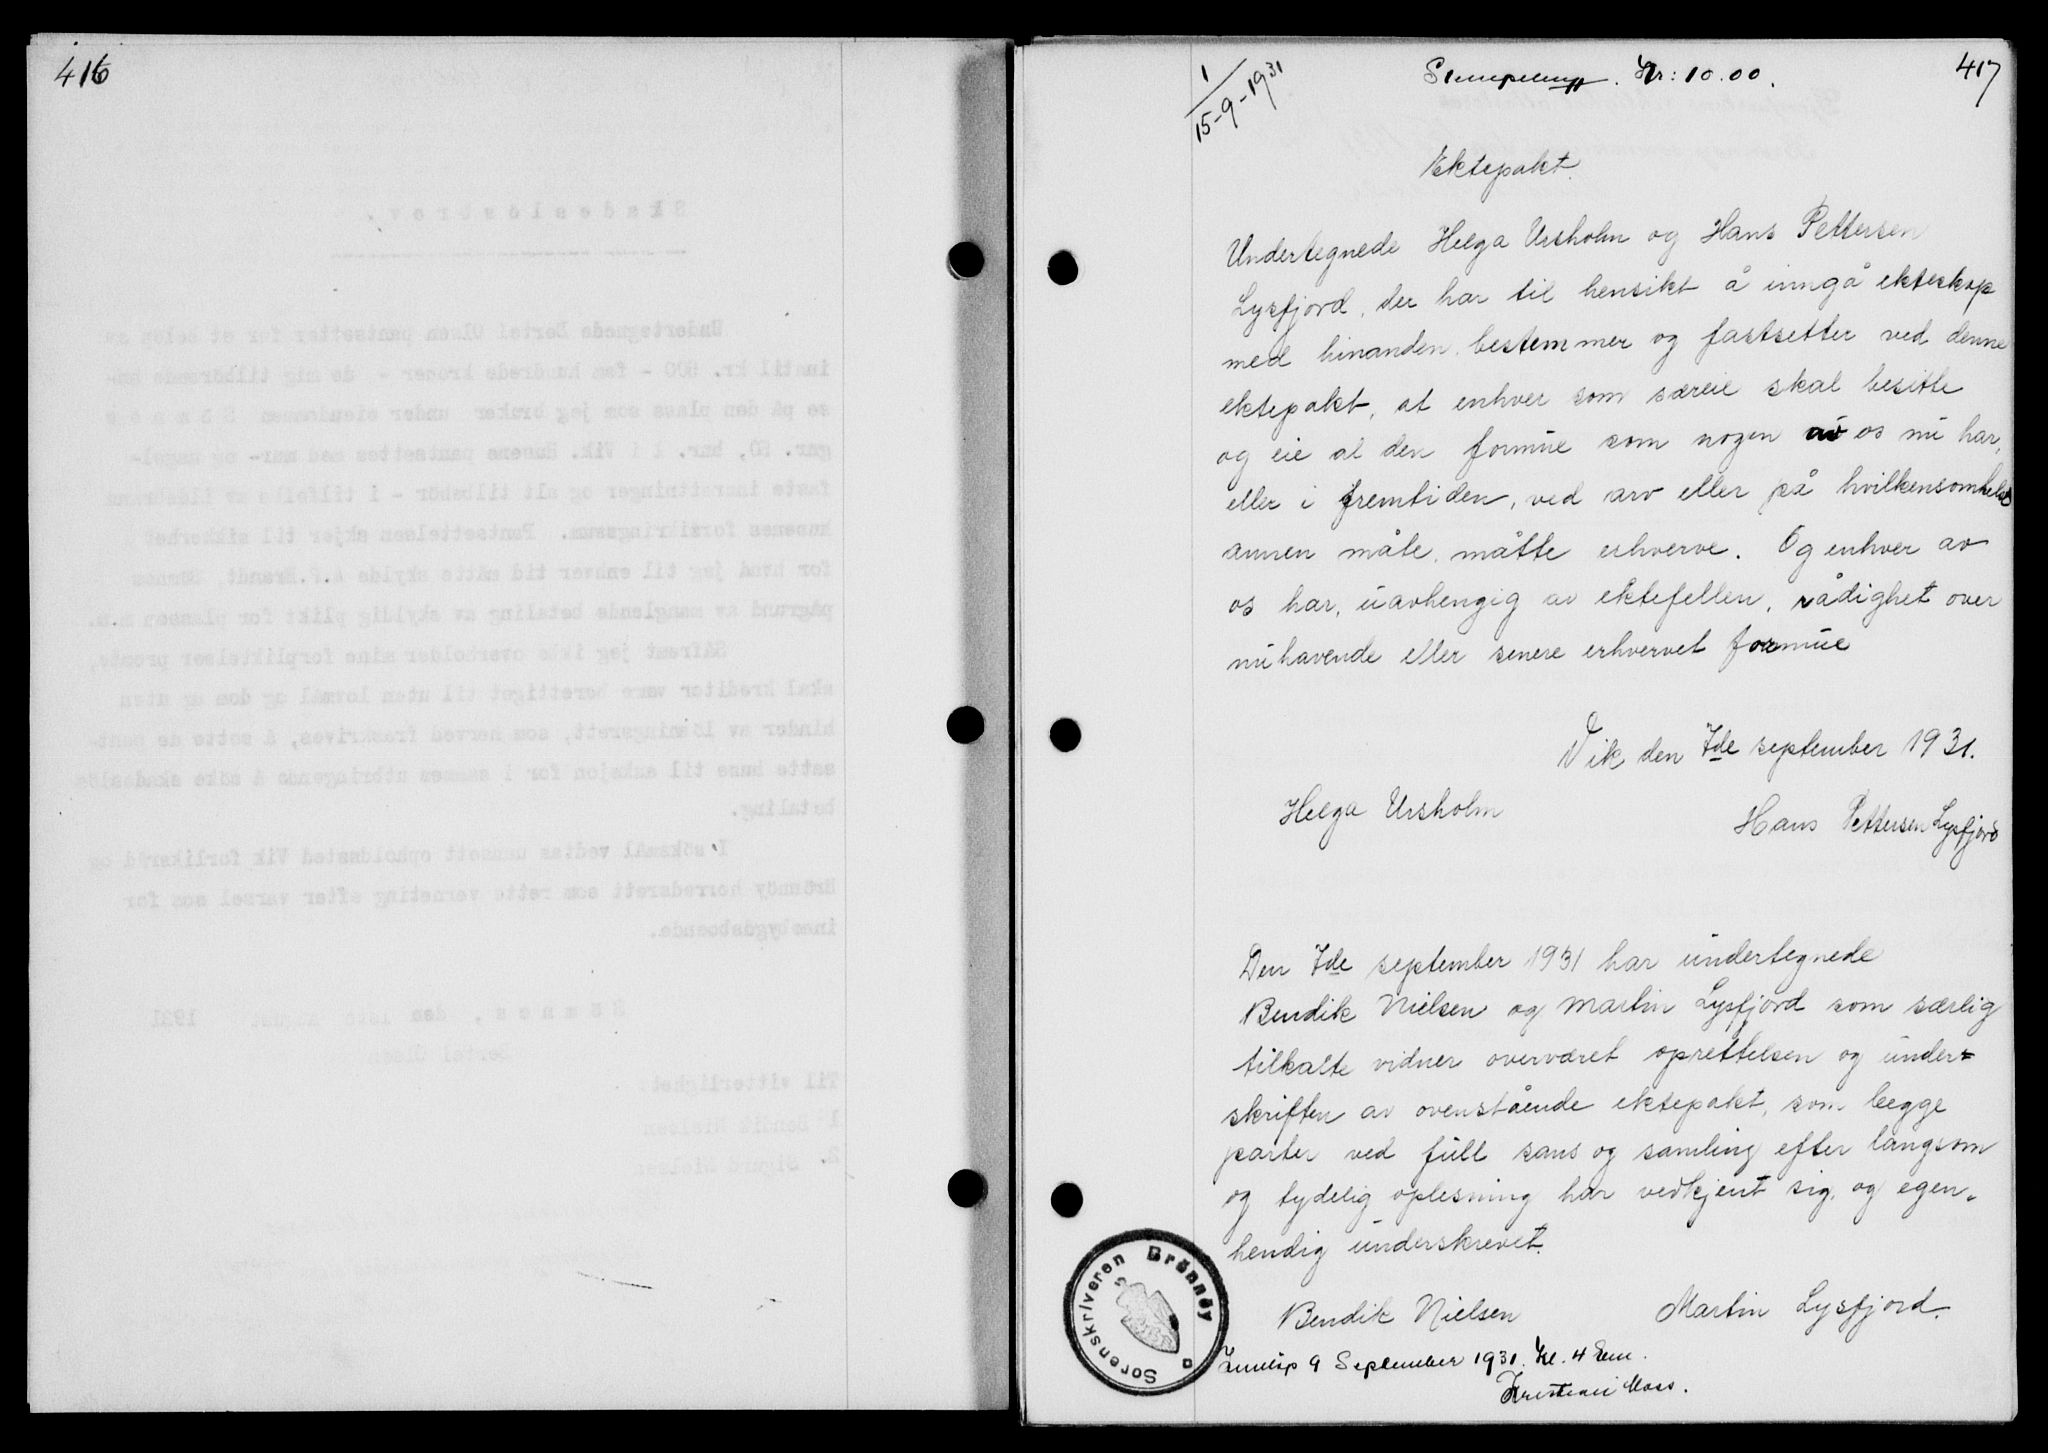 416
417
1
15-9-1931
Stempelmrk. Kr: 10.00.
Ektepakt.
Undertegnede Helga Ursholm og Hans Pettersen
Lysfjord, der har til hensikt å inngå ekteskap
med hinanden, bestemmer og fastsetter ved denne
ektepakt, at enhver som særeie skal besitte
og eie al den formue som nogen av os nu har,
eller i fremtiden, ved arv eller på hvilkensomhelst
annen måte, måtte erhverve. Og enhver av
os har, uavhengig av ektefellen, rådighet over
nuhavende eller senere erhvervet formue
Vik den 7de september 1931.
Helga Ursholm
Hans Pettersen Lysfjord
Den 7de september 1931 har undertegnede
Bendik Nielsen og Martin Lysfjord som særlig
tilkalte vidner overværet oprettelsen og under=
skriften av ovenstående ektepakt, som begge
parter ved full sans og samling efter langsom
og tydelig oplesning har vedkjent sig, og egen-
hendig underskrevet.
Bendik Nielsen
Martin Lysfjord.
Sorenskriveren Brönnöy
9 September 1931. Kl. 4 Em.